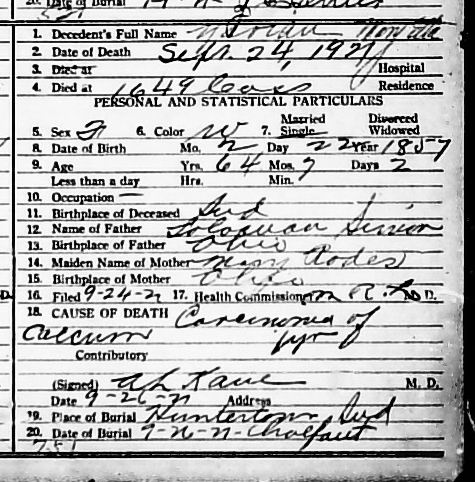 20. Date of Burial
1. Decedent's Full Name
2. Date of Death Sept. 24, 1921
3. Died at Hospital
4. Died at 1649 Cass Residence
PERSONAL AND STATISTICAL PARTICULARS
Married Divorced
5. Sex F 6. Color W 7. Single Widowed
8. Date of Birth Mo. 2 Day 22 Year 1857
9. Age Yrs. 64 Mos. 7 Days 2
Less than a day Hrs. Min.
10. Occupation —
11. Birthplace of Deceased Ind
12. Name of Father Solomon Simon
13. Birthplace of Father Ohio
14. Maiden Name of Mother Mary Rodes
15. Birthplace of Mother Ohio
16. Filed 9-24-21 17. Health Commissioner M. D.
18. CAUSE OF DEATH Carcinoma of
Caecum
Contributory
(Signed) A L Kane M. D.
Date 9-26-21 Address
19. Place of Burial Huntertown Ind
20. Date of Burial 9-26-21 Chalfant
751